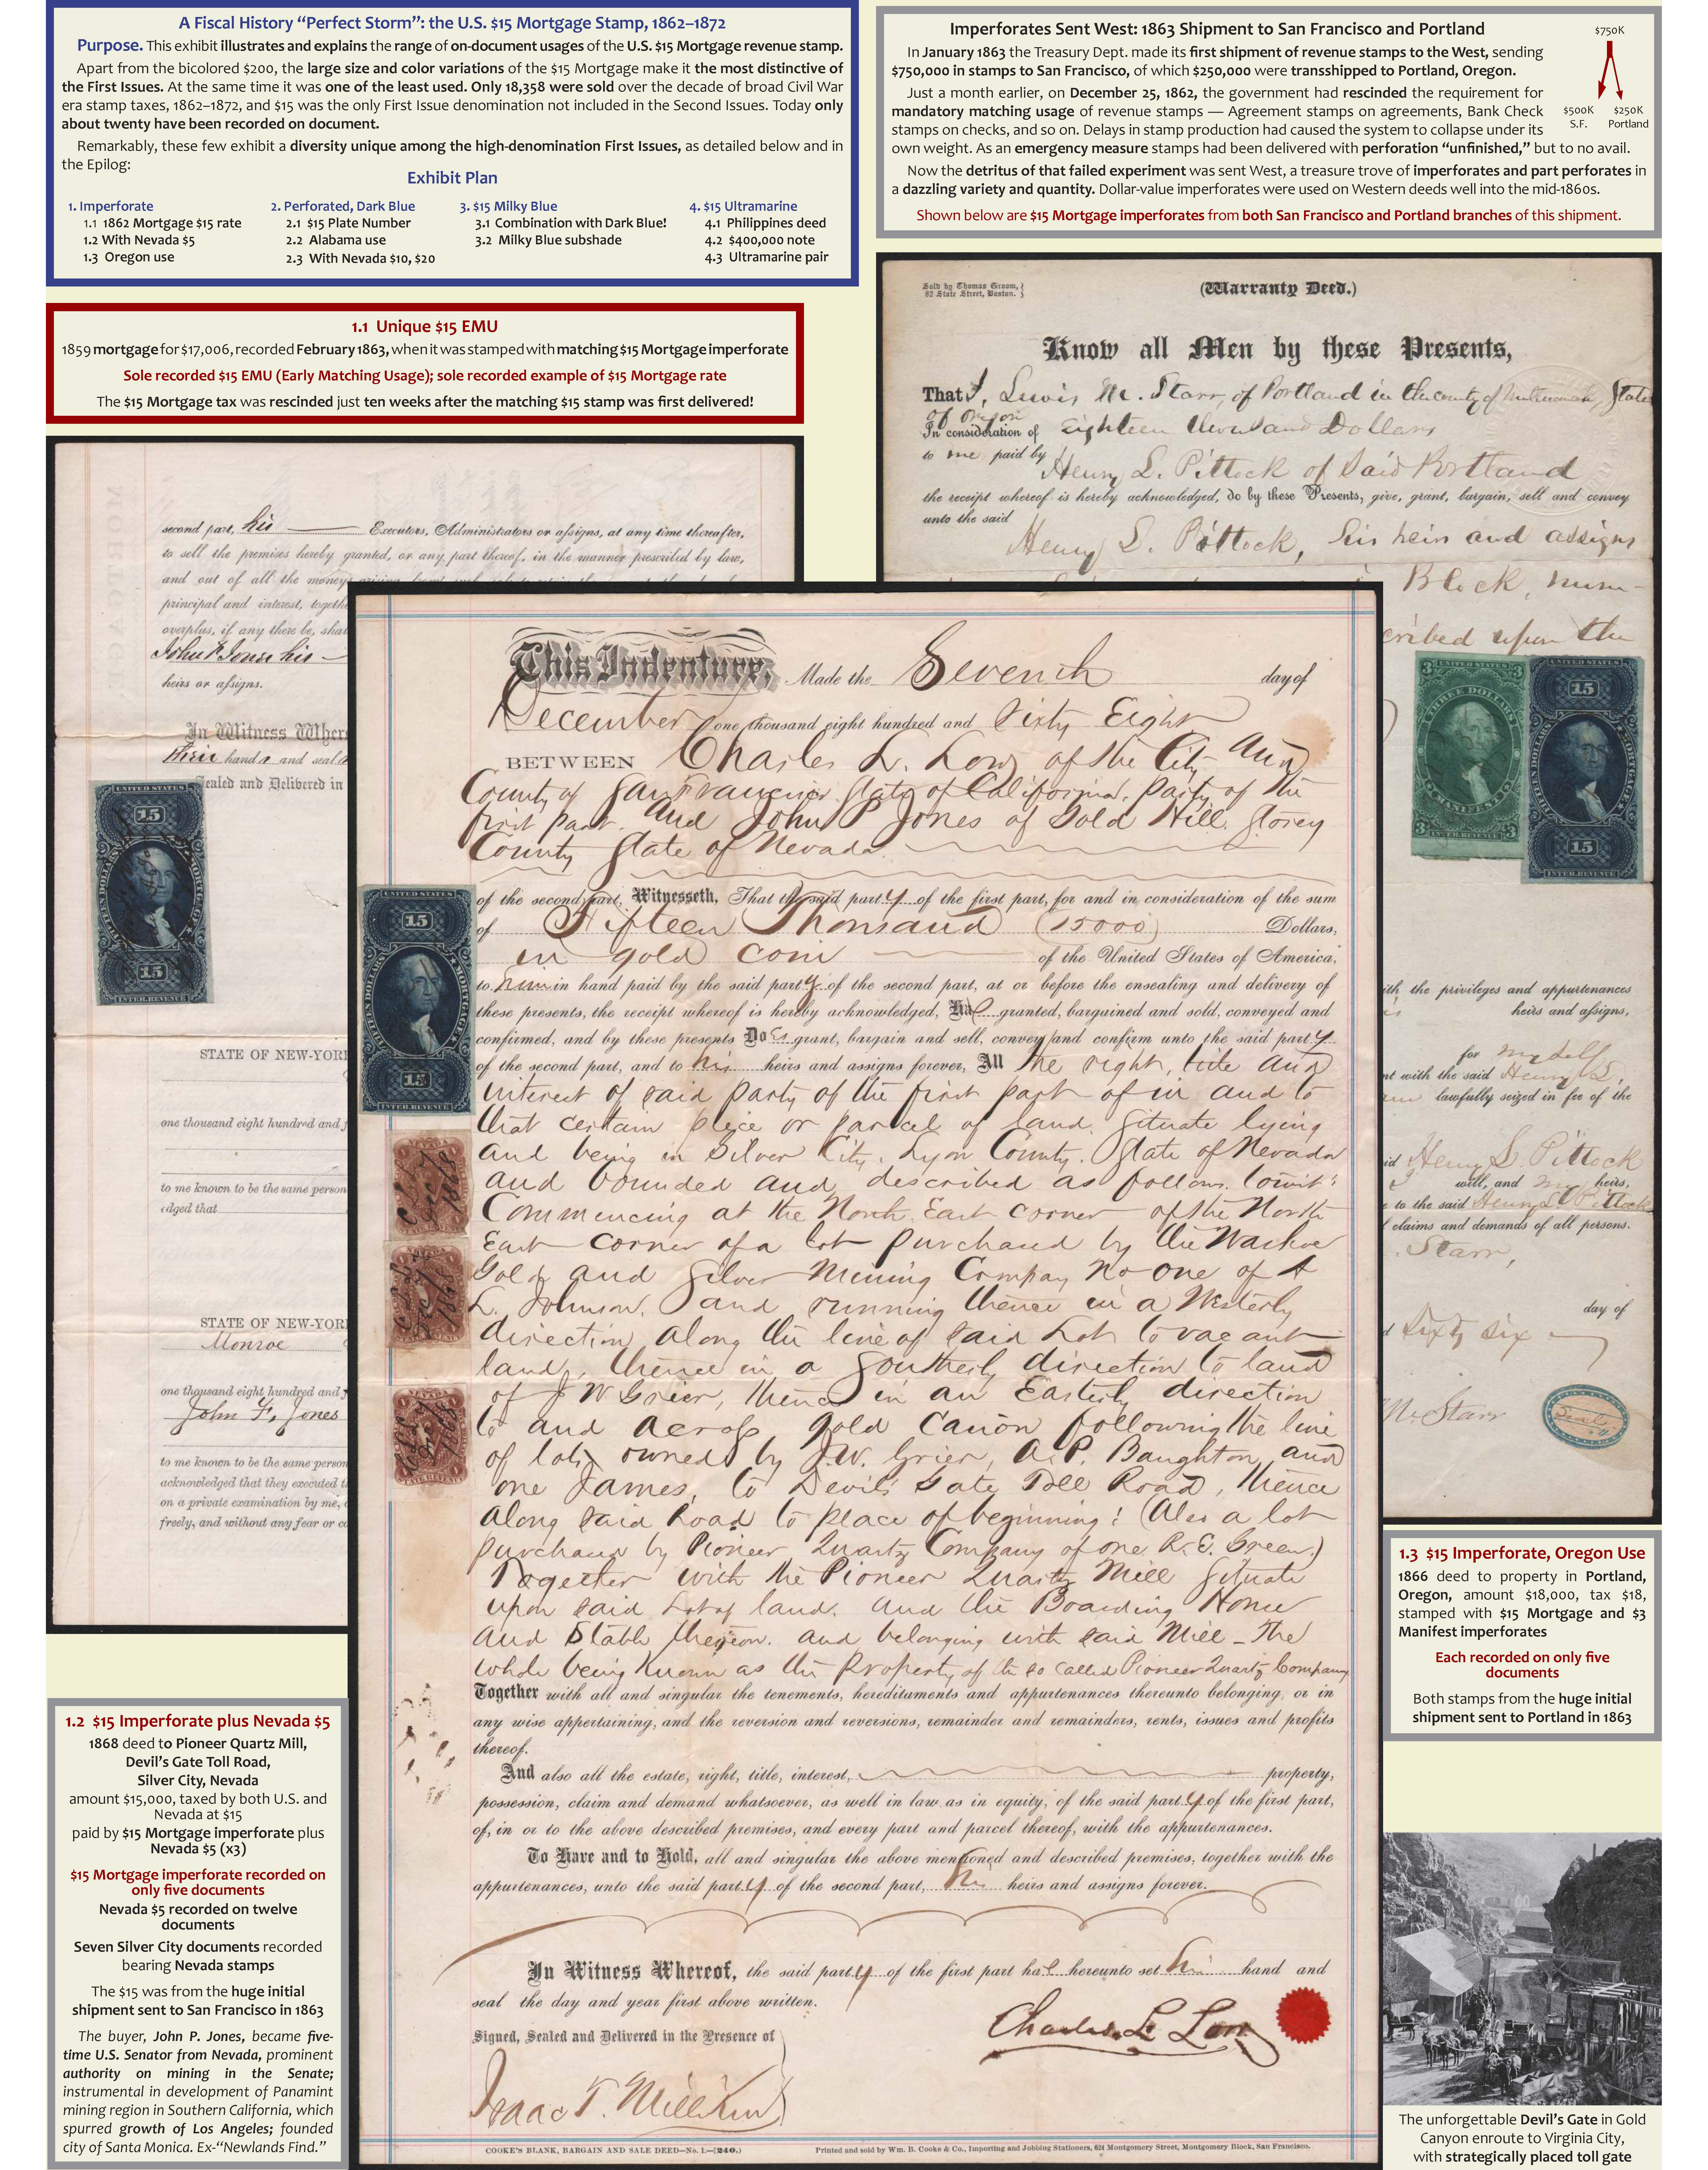 A Fiscal History “Perfect Storm”: the U.S. $15 Mortgage Stamp, 1862–1872
Purpose. This exhibit illustrates and explains the range of on-document usages of the U.S. $15 Mortgage revenue stamp.
Apart from the bicolored $200, the large size and color variations of the $15 Mortgage make it the most distinctive of
the First Issues. At the same time it was one of the least used. Only 18,358 were sold over the decade of broad Civil War
era stamp taxes, 1862–1872, and $15 was the only First Issue denomination not included in the Second Issues. Today only
about twenty have been recorded on document.
Remarkably, these few exhibit a diversity unique among the high-denomination First Issues, as detailed below and in
the Epilog:
Exhibit Plan
1. Imperforate
1.1 1862 Mortgage $15 rate
1.2 With Nevada $5
1.3 Oregon use
2. Perforated, Dark Blue
2.1 $15 Plate Number
2.2 Alabama use
2.3 With Nevada $10, $20
3. $15 Milky Blue
3.1 Combination with Dark Blue!
3.2 Milky Blue subshade
4. $15 Ultramarine
4.1 Philippines deed
4.2 $400,000 note
4.3 Ultramarine pair
Imperforates Sent West: 1863 Shipment to San Francisco and Portland
In January 1863 the Treasury Dept. made its first shipment of revenue stamps to the West, sending
$750,000 in stamps to San Francisco, of which $250,000 were transshipped to Portland, Oregon.
Just a month earlier, on December 25, 1862, the government had rescinded the requirement for
mandatory matching usage of revenue stamps — Agreement stamps on agreements, Bank Check
stamps on checks, and so on. Delays in stamp production had caused the system to collapse under its
own weight. As an emergency measure stamps had been delivered with perforation “unfinished,” but to no avail.
Now the detritus of that failed experiment was sent West, a treasure trove of imperforates and part perforates in
a dazzling variety and quantity. Dollar-value imperforates were used on Western deeds well into the mid-1860s.
Shown below are $15 Mortgage imperforates from both San Francisco and Portland branches of this shipment.
$750K
$500K $250K
S.F. Portland
1.1 Unique $15 EMU
1859 mortgage for $17,006, recorded February 1863, when it was stamped with matching $15 Mortgage imperforate
Sole recorded $15 EMU (Early Matching Usage); sole recorded example of $15 Mortgage rate
The $15 Mortgage tax was rescinded just ten weeks after the matching $15 stamp was first delivered!
Sold by Thomas Groom,
82 State Street, Boston.
(Warranty Deed.)
Know all Men by these Presents,
That I, Lewis M. Starr, of Portland in the county of Multnomah, State
of Oregon
In consideration of Eighteen thousand Dollars
to me paid by Henry L. Pittock of said Portland
the receipt whereof is hereby acknowledged, do by these Presents, give, grant, bargain, sell and convey
unto the said
Henry L. Pittock, his heirs and assigns
Block, num-
cribed upon the
UNITED STATES
THREE DOLLARS
MANIFEST
INTER. REVENUE
UNITED STATES
15
FIFTEEN DOLLARS
MORTGAGE
15
INTER. REVENUE
ith the privileges and appurtenances
heirs and assigns,
for myself
nt with the said Henry L.
lawfully seized in fee of the
id Henry L. Pittock
will, and my heirs,
e to the said Henry L. Pittock
claims and demands of all persons.
Starr,
day of
d sixty six
M. Starr
Seal
second part, his Executors, Administrators or assigns, at any time thereafter,
to sell the premises hereby granted, or any part thereof, in the manner prescribed by law,
and out of all the moneys arising from such sale to retain the
principal and interest, togeth
overplus, if any there be, shal
John P Jones his
heirs or assigns.
In Witness Wher
their hands and seal
Sealed and Delivered in
UNITED STATES
15
FIFTEEN DOLLARS
MORTGAGE
15
INTER. REVENUE
STATE OF NEW-YOR
one thousand eight hundred and f
to me known to be the same person
edged that
STATE OF NEW-YOR
Monroe
one thousand eight hundred and
John F. Jones
to me known to be the same person
acknowledged that they executed t
on a private examination by me,
freely, and without any fear or co
This Indenture, Made the Seventh day of
December one thousand eight hundred and Sixty Eight
BETWEEN Charles L. Low of the City and
County of San Francisco State of California, party of the
first part and John P Jones of Gold Hill Storey
County State of Nevada
of the second part, Witnesseth, That the said party of the first part, for and in consideration of the sum
of Fifteen Thousand (15000) Dollars,
in gold coin of the United States of America,
to him in hand paid by the said party of the second part, at or before the ensealing and delivery of
these presents, the receipt whereof is hereby acknowledged, Has granted, bargained and sold, conveyed and
confirmed, and by these presents Does grant, bargain and sell, convey and confirm unto the said party
of the second part, and to his heirs and assigns forever, All the right, title and
interest of said party of the first part of in and to
that certain piece or parcel of land, situate lying
and being in Silver City, Lyon County, State of Nevada
and bounded and described as follows towit:
Commencing at the North East corner of the North
East corner of a lot purchased by the Washoe
Gold and Silver Mining Company No One of A
L. Johnson, and running thence in a Westerly
direction along the line of said Lot to vacant
land, thence in a Southerly direction to land
of J W Grier, thence in an Easterly direction
to and across gold Canon following the line
of lots owned by J.W. Grier, A.P. Baughton, and
one James, to Devil's Gate Toll Road, thence
along said Road to place of beginning: (Also a lot
purchased by Pioneer Quartz Company of one R. E. Green)
Together with the Pioneer Quartz Mill situate
upon said Lot of land, and the Boarding House
and Stable thereon, and belonging with said Mill – The
whole being known as the Property of the so called Pioneer Quartz Company
Together with all and singular the tenements, hereditaments and appurtenances thereunto belonging, or in
any wise appertaining, and the reversion and reversions, remainder and remainders, rents, issues and profits
thereof.
And also all the estate, right, title, interest, property,
possession, claim and demand whatsoever, as well in law as in equity, of the said party of the first part,
of, in or to the above described premises, and every part and parcel thereof, with the appurtenances.
To Have and to Hold, all and singular the above mentioned and described premises, together with the
appurtenances, unto the said party of the second part, his heirs and assigns forever.
In Witness Whereof, the said party of the first part has hereunto set his hand and
seal the day and year first above written.
Signed, Sealed and Delivered in the Presence of
Charles L Low
Isaac T. Milliken
COOKE'S BLANK, BARGAIN AND SALE DEED—No. 1.—(240.) Printed and sold by Wm. B. Cooke & Co., Importing and Jobbing Stationers, 624 Montgomery Street, Montgomery Block, San Francisco.
UNITED STATES
15
FIFTEEN DOLLARS
MORTGAGE
15
INTER. REVENUE
NEVADA
C L L
Dec 7
1868
1.2 $15 Imperforate plus Nevada $5
1868 deed to Pioneer Quartz Mill,
Devil’s Gate Toll Road,
Silver City, Nevada
amount $15,000, taxed by both U.S. and
Nevada at $15
paid by $15 Mortgage imperforate plus
Nevada $5 (x3)
$15 Mortgage imperforate recorded on
only five documents
Nevada $5 recorded on twelve
documents
Seven Silver City documents recorded
bearing Nevada stamps
The $15 was from the huge initial
shipment sent to San Francisco in 1863
The buyer, John P. Jones, became five-
time U.S. Senator from Nevada, prominent
authority on mining in the Senate;
instrumental in development of Panamint
mining region in Southern California, which
spurred growth of Los Angeles; founded
city of Santa Monica. Ex-“Newlands Find.”
1.3 $15 Imperforate, Oregon Use
1866 deed to property in Portland,
Oregon, amount $18,000, tax $18,
stamped with $15 Mortgage and $3
Manifest imperforates
Each recorded on only five
documents
Both stamps from the huge initial
shipment sent to Portland in 1863
The unforgettable Devil’s Gate in Gold
Canyon enroute to Virginia City,
with strategically placed toll gate